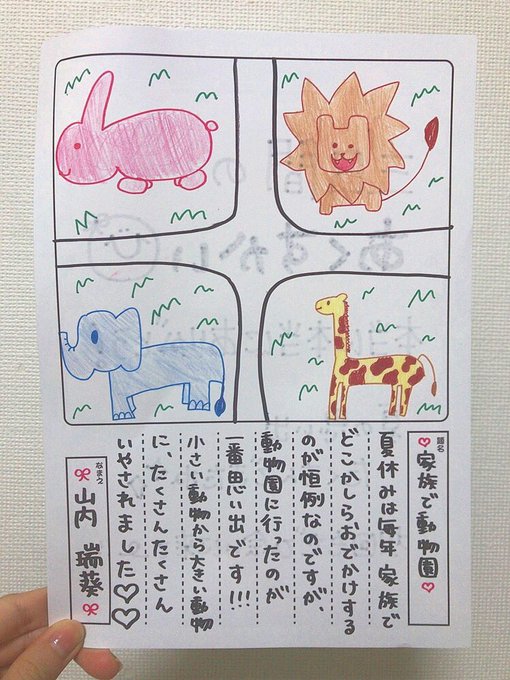 題名
♡家族で動物園♡
夏休みは毎年 家族で
どこかしらおでかけする
のが恒例なのですが、
動物園に行ったのが
一番思い出です!!!
小さい動物から大きい動物
に、たくさんたくさん
いやされました♡♡
なまえ
山内 瑞葵